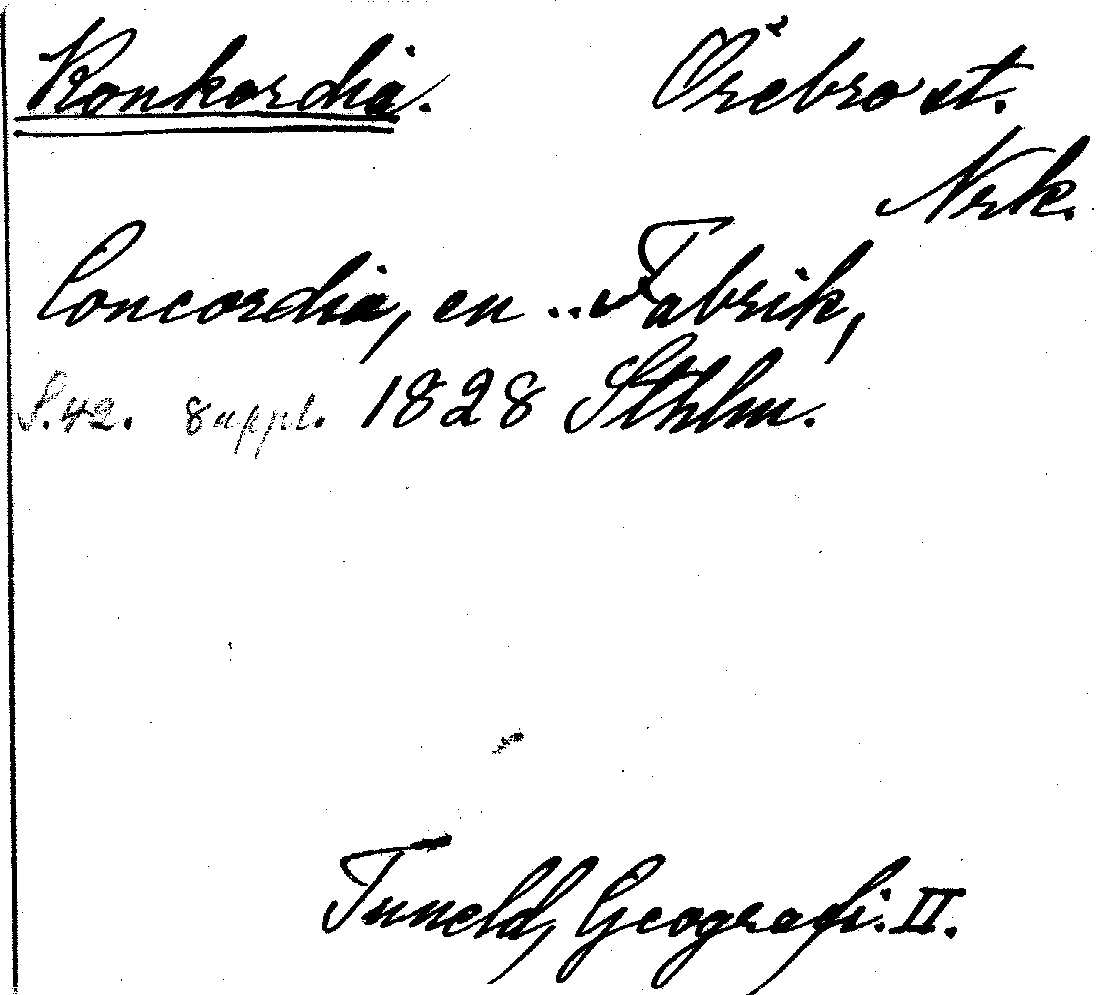 Konkordia. Örebro st.
Nrk.
Concordia, en .. Fabrik,
S. 42. Suppl. 1828 Sthlm.
Tuneld, Geografi. II.